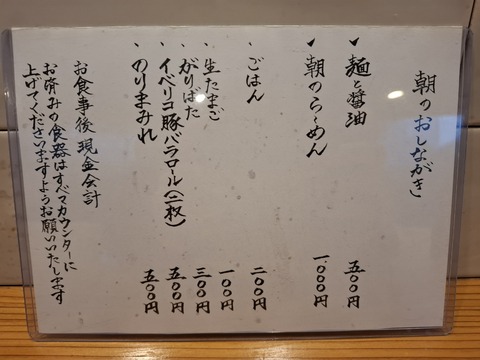 朝のおしながき
✓ 麺と醤油 五〇〇円
✓ 朝のらーめん 一、〇〇〇円
・ごはん 二〇〇円
・生たまご 一〇〇円
・がりばた 三〇〇円
・イベリコ豚バラロール(二枚) 五〇〇円
・のりまみれ 五〇〇円
お食事後現金会計
お済みの食器はすべてカウンターに
上げてくださいますようお願いいたします